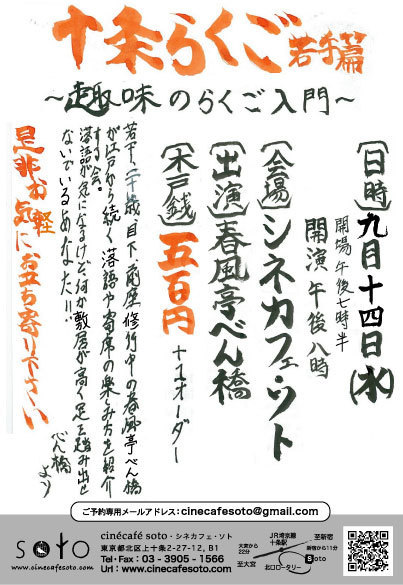 十条らくご若手篇
～趣味のらくご入門～
【日時】九月十四日(水)
開場午後七時半
開演 午後八時
【会場】シネカフェ・ソト
【出演】春風亭べん橋
【木戸銭】五百円
＋1オーダー
若干二十歳 目下前座修行中の春風亭べん橋
が江戸から続く落語や寄席の楽しみ方を紹介
する会。
落語が気になるけど、何か敷居が高く足を踏み出せ
ないでいるあなた!!
べん橋より
是非お気軽にお立ち寄り下さい
ご予約専用メールアドレス：cinecafesoto@gmail.com
soto
www.cinecafesoto.com
cinécafé soto・シネカフェ・ソト
東京都北区上十条2-27-12, B1
Tel・Fax：03 - 3905 - 1566
Url：www.cinecafesoto.com
大宮から
22分
JR埼京線
十条駅
至新宿
新宿から11分
至大宮
北口ロータリー
soto